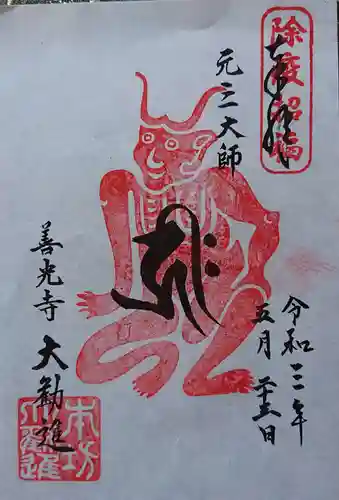 除疫招福
奉拝
令和三年
五月二十三日
元三大師
善光寺 大勧進
本坊
大勧進